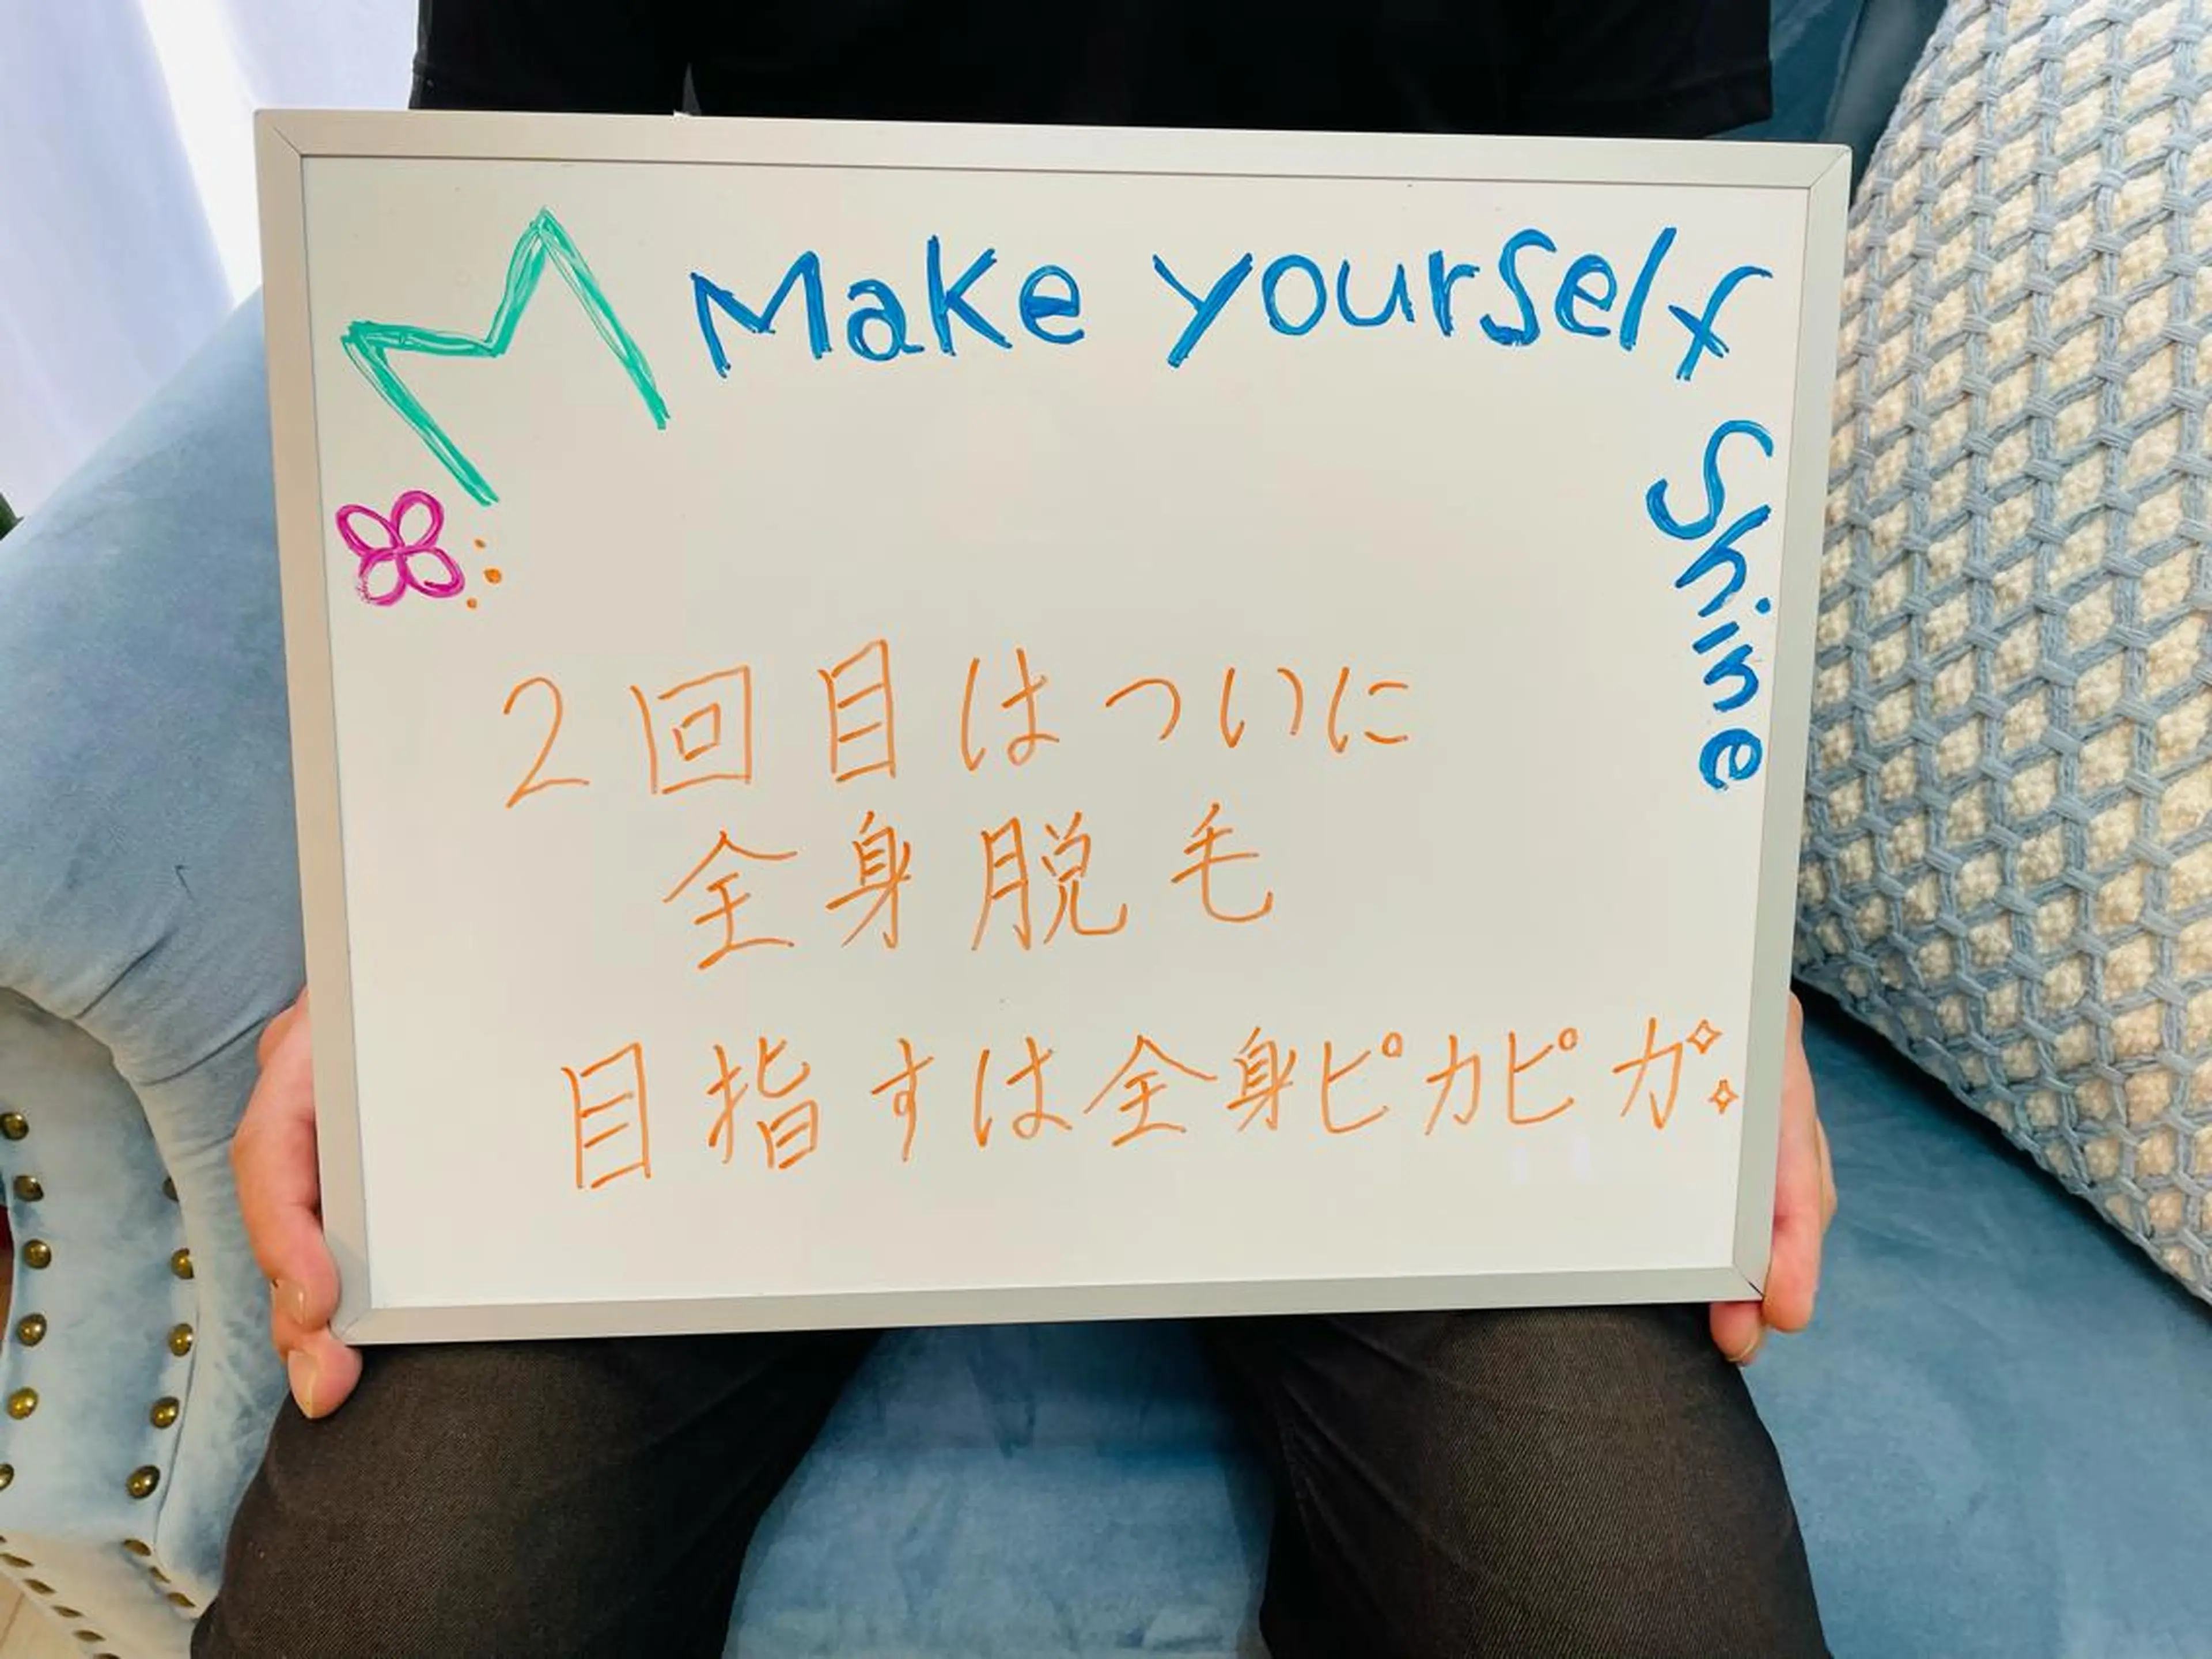 M Make yourself
Shine
2回目はついに
全身脱毛
目指すは全身ピカピカ